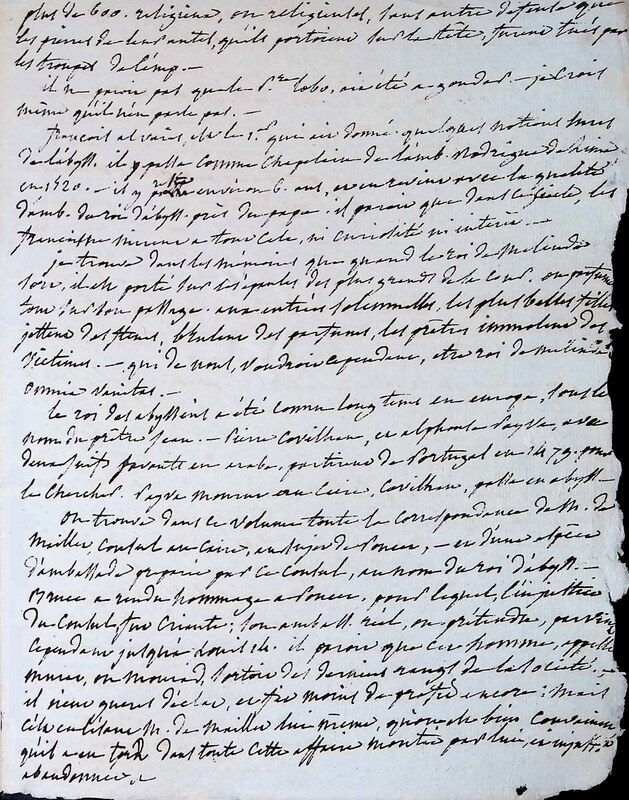 plus de 600. religieux, ou religieuses, sans autre defense que
les pierres de leurs autels, qu'ils portoient sur la tête, furent tués par
les troupes de l'emp. —
il ne paroit pas que le P. Lobo, ait été a gondar. — je crois
même qu'il n'en parle pas. —
françois alvarès, est le 1er qui ait donné quelques notions sures
de l'abyss. il y passa comme chapelain de l'amb. Rodrigue de Lima
en 1520. — il y resta environ 6. ans, et en revint avec la qualité
d'amb. du roi d'abyss. près du pape. il paroit que dans ce siècle, les
françois ne mirent a tout cela, ni curiosité ni intérêt. —
je trouve dans les mémoires que quand le roi de Melinde
sort, il est porté sur les epaules des plus grands de la cour. on parfume
tout sur son passage. aux entrées solemnelles, les plus belles filles
jettent des fleurs, brulent des parfums, les prêtres immolent des
victimes. — qui de nous, voudroit cependant, etre roi de melinde
omnia vanitas. —
le roi des abyssins a été connu long tems en europe, sous le
nom du prêtre jean. — Pierre Covilham, et alphonse Payva, avec
deux juifs savants en arabe, partirent de Portugal en 1479. pour
le chercher. Payva mourut au Caire, Covilham, passa en abyss. —
On trouve dans ce volume toute la correspondance de M. de
Maillet, Consul au Caire, au sujet de Poncet, — et d'une espèce
d'ambassade préparée par ce Consul, au nom du roi d'abyss. —
Bruce a rendu hommage a Poncet, pour lequel, l'injustice
du Consul fut criante; son ambass. réel, ou prétendu, parvint
cependant jusqu'à Louis 14. il paroit que cet homme, appellé
murat, ou mourad, sortoit des derniers rangs de la société. —
il n'eut guères d'éclat, et fit moins de profit encore: mais
c'est en lisant M. de Maillet lui même, qu'on est bien convaincu
qu'il a eu tord dans toute cette affaire montée par lui, et
abandonnée.